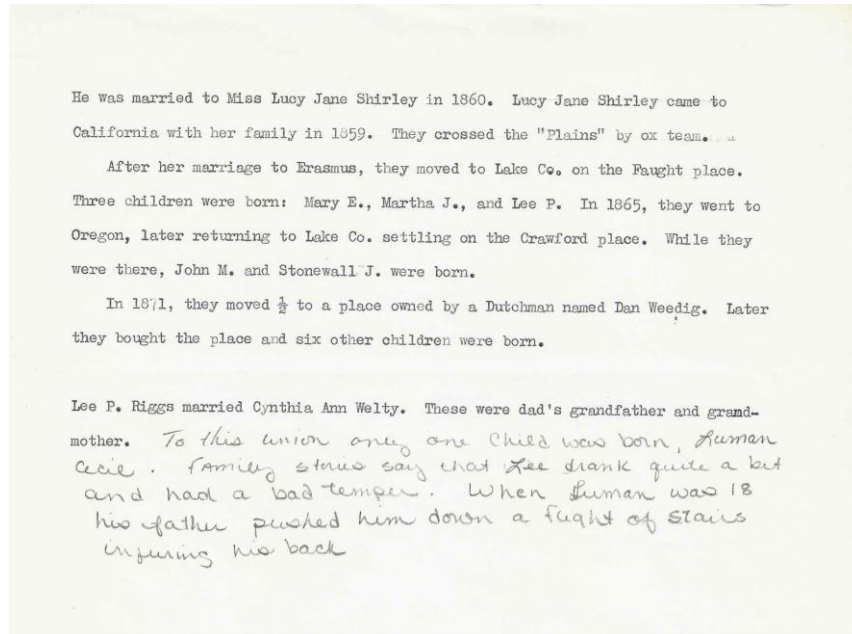 He was married to Miss Lucy Jane Shirley in 1860. Lucy Jane Shirley came to
California with her family in 1859. They crossed the "Plains" by ox team.
After her marriage to Erasmus, they moved to Lake Co. on the Faught place.
Three children were born: Mary E., Martha J., and Lee P. In 1865, they went to
Oregon, later returning to Lake Co. settling on the Crawford place. While they
were there, John M. and Stonewall J. were born.
In 1871, they moved ½ to a place owned by a Dutchman named Dan Weedig. Later
they bought the place and six other children were born.
Lee P. Riggs married Cynthia Ann Welty. These were dad's grandfather and grand-
mother. To this union only one child was born, Luman
Cecil. Family stories say that Lee drank quite a bit
and had a bad temper. When Luman was 18
his father pushed him down a flight of stairs
injuring his back